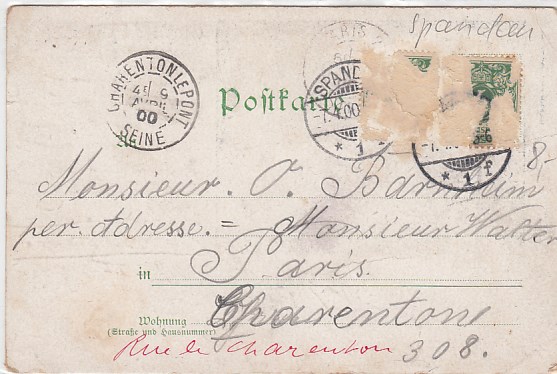 Spandau
PARIS
CHARENTON LE PONT
4E 9
AVRIL
00
SEINE
Postkarte
SPANDAU
7.4.00
* 1
* 1 f
8.
Monsieur. O. Barnheim
per. Adresse. = Monsieur Walter
in Paris.
Charenton
Wohnung
(Straße und Hausnummer)
Rue de Charenton 308.